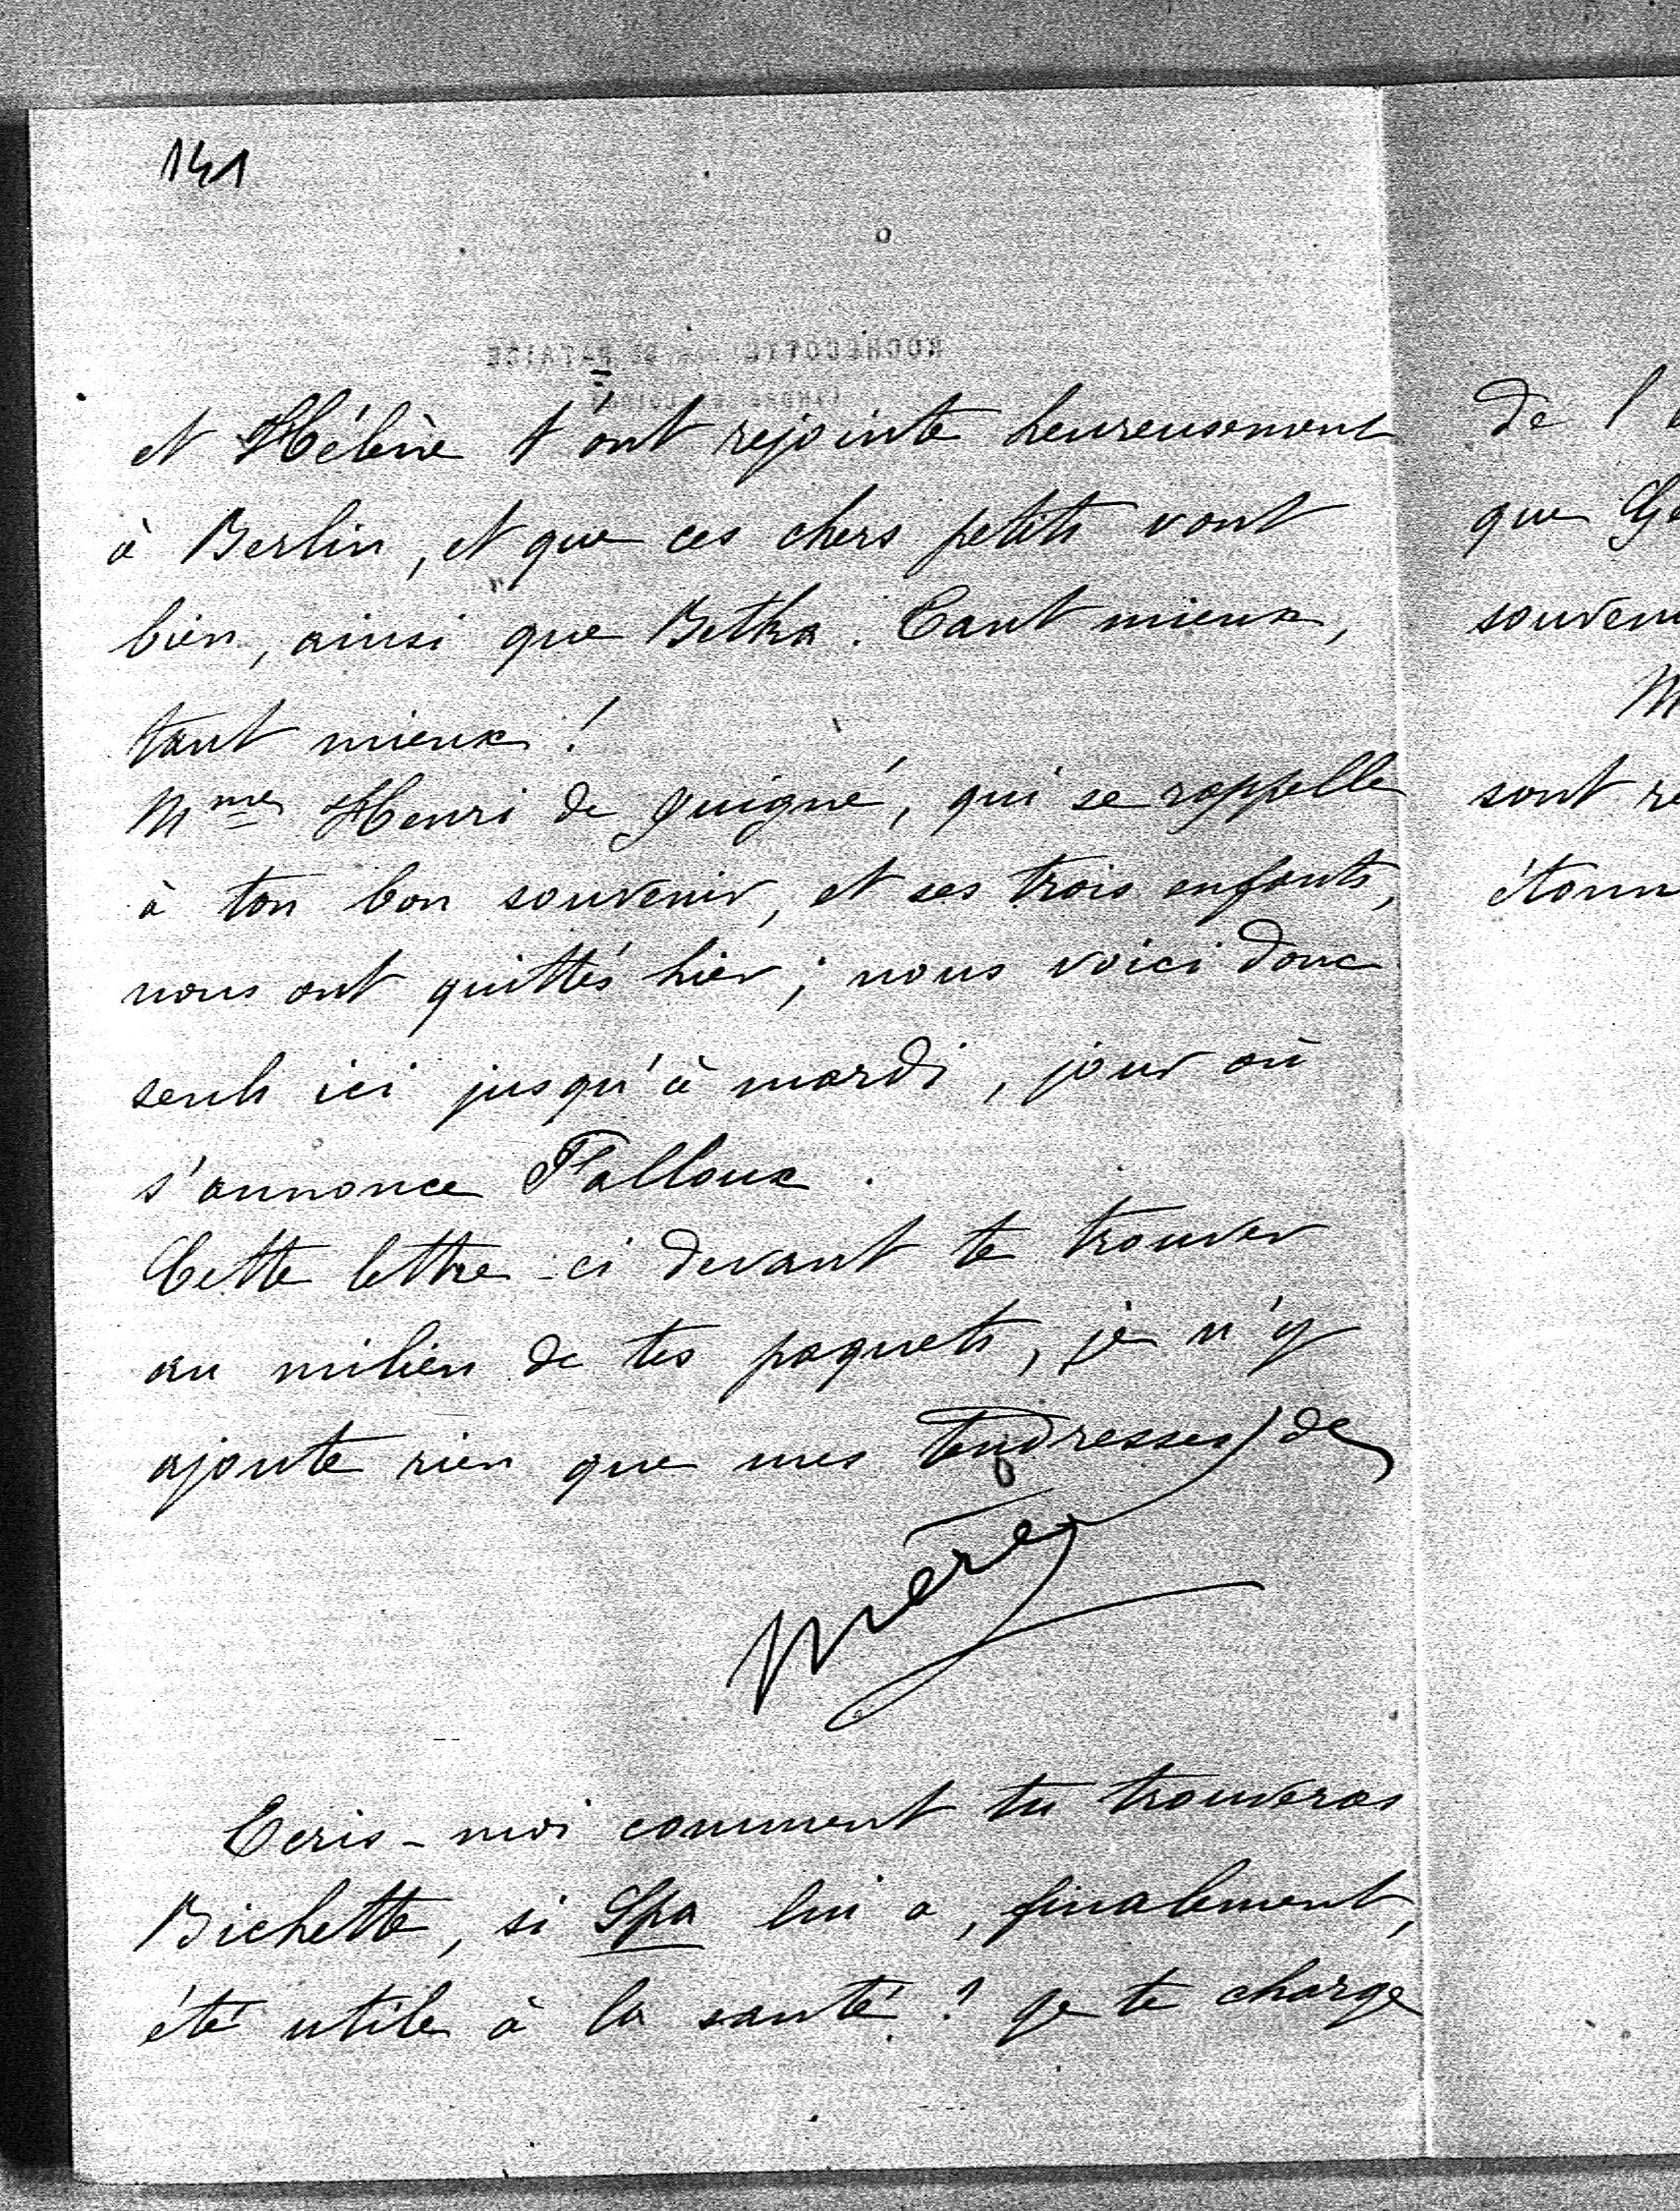 141
et Hélène t'ont rejointe heureusement
à Berlin, et que ces chers petits vont
bien, ainsi que Betka. Tant mieux,
tant mieux !
Mme Henri de Guigné, qui se rappelle
à ton bon souvenir, et ses trois enfants,
nous ont quittés hier ; nous voici donc
seuls ici jusqu'à mardi, jour où
s'annonce Falloux.
Cette lettre-ci devant te trouver
au milieu de tes paquets, je n'y
ajoute rien que mes tendresses de
Mère
Ecris-moi comment tu trouveras
Bichette, si Spa lui a, finalement,
été utile à la santé ? Je te charge
de l
que
souven
M
sont re
étonn